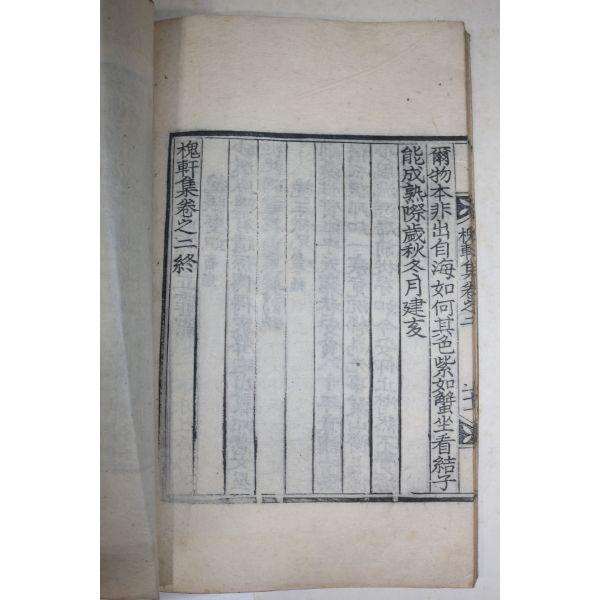 槐軒集卷之二
二十一
爾物本非出自海如何其色紫如蟹坐看結子
能成熟際歲秋冬月建亥
槐軒集卷之二終